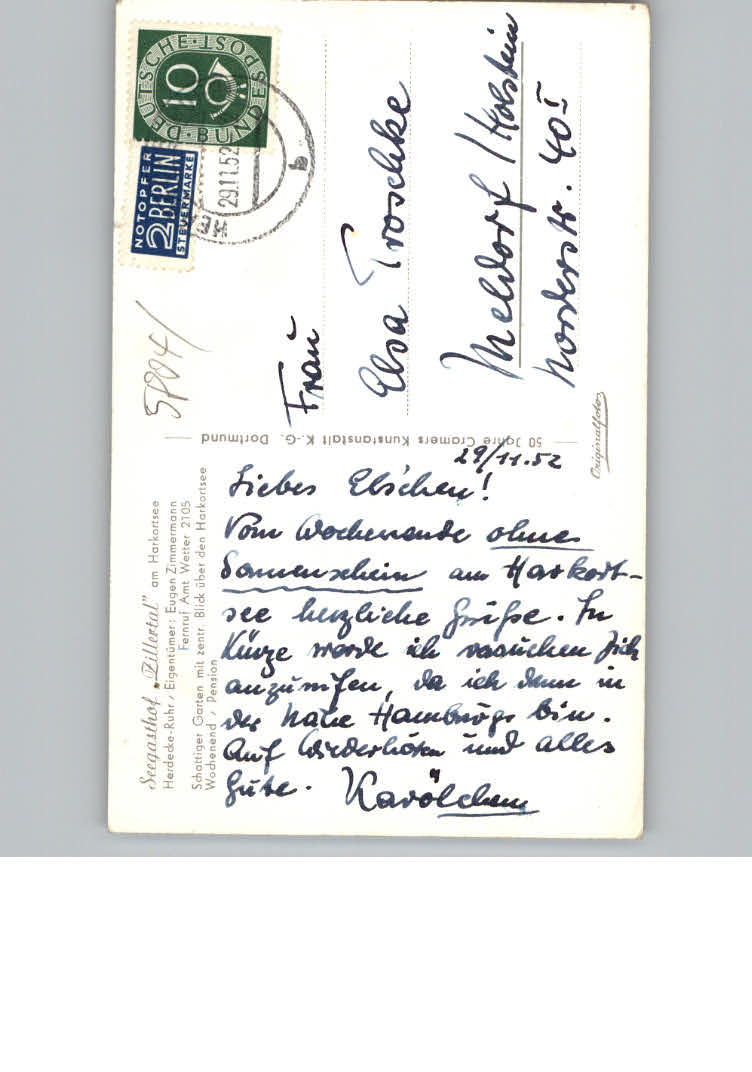 Seegasthof „Zillertal" am Harkortsee
Herdecke-Ruhr / Eigentümer: Eugen Zimmermann
Fernruf Amt Wetter 2105
Schattiger Garten mit zentr. Blick über den Harkortsee
Wochenend / Pension
29/11.52
Liebes Elschen!
Vom Wochenende ohne
Sonnenschein am Harkort-
see herzliche Grüße. In
Kürze werde ich versuchen Dich
anzurufen, da ich dann in
der Nähe Hamburgs bin.
Auf Wiederhören und alles
Gute. Karölchen
50 Jahre Cramers Kunstanstalt K.-G. Dortmund
Originalfoto
DEUTSCHE BUNDESPOST
10
NOTOPFER
2 BERLIN
STEUERMARKE
29.11.52
b
Frau
Elsa Troschke
Meldorf / Holstein
Norderstr. 40 I